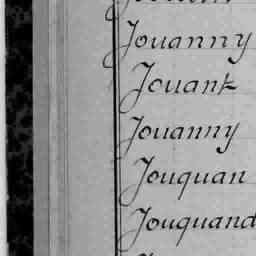 Jouanny
Jouank
Jouanny
Jouquan
Jouquand